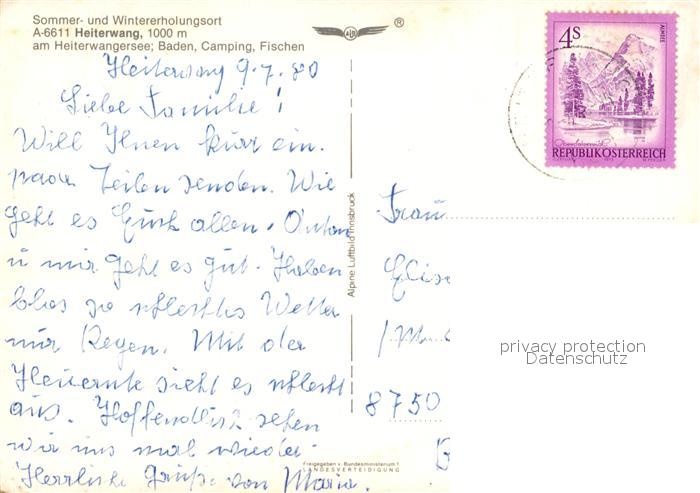 Sommer- und Wintererholungsort
A-6611 Heiterwang, 1000 m
am Heiterwangersee; Baden, Camping, Fischen
®
Heiterwang 9.7.80
Liebe Familie!
Will Ihnen kurz ein
paar Zeilen senden. Wie
geht es Euch allen.
u mir geht es gut. Haben
blos so schlechtes Wetter
nur Regen. Mit der
Heuernte sieht es schlecht
aus. Hoffendlich sehen
wir uns mal wieder.
Herrliche Grüße von Maria.
Alpine Luftbild Innsbruck
Freigegeben v. Bundesministerium f.
LANDESVERTEIDIGUNG
4S
ALMSEE
REPUBLIK ÖSTERREICH
Frau
8750
privacy protection
Datenschutz